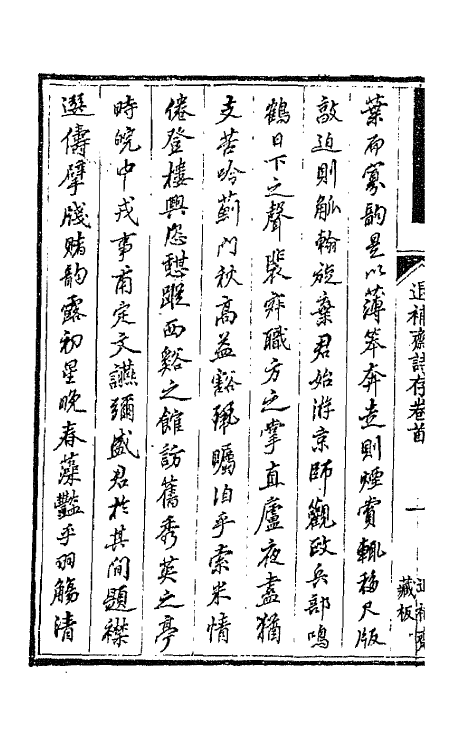 葉而寡韵是以薄笨奔走則煙賞輒移尺版
敲迫則觚翰旋棄君始游京師觀政兵部鳴
鶴日下之聲裴弈職方之掌直廬夜盡猶
支苦吟薊門秋高益豁孤矚洎乎索米情
倦登樓興惄憇蹤西谿之館訪舊秀英之亭
時皖中戎事甫定文讌彌盛君於其間題襟
選儔擘牋賭韵露初星晚春藻豔乎羽觴清
退補齋詩存卷首
一
退補齋
藏板